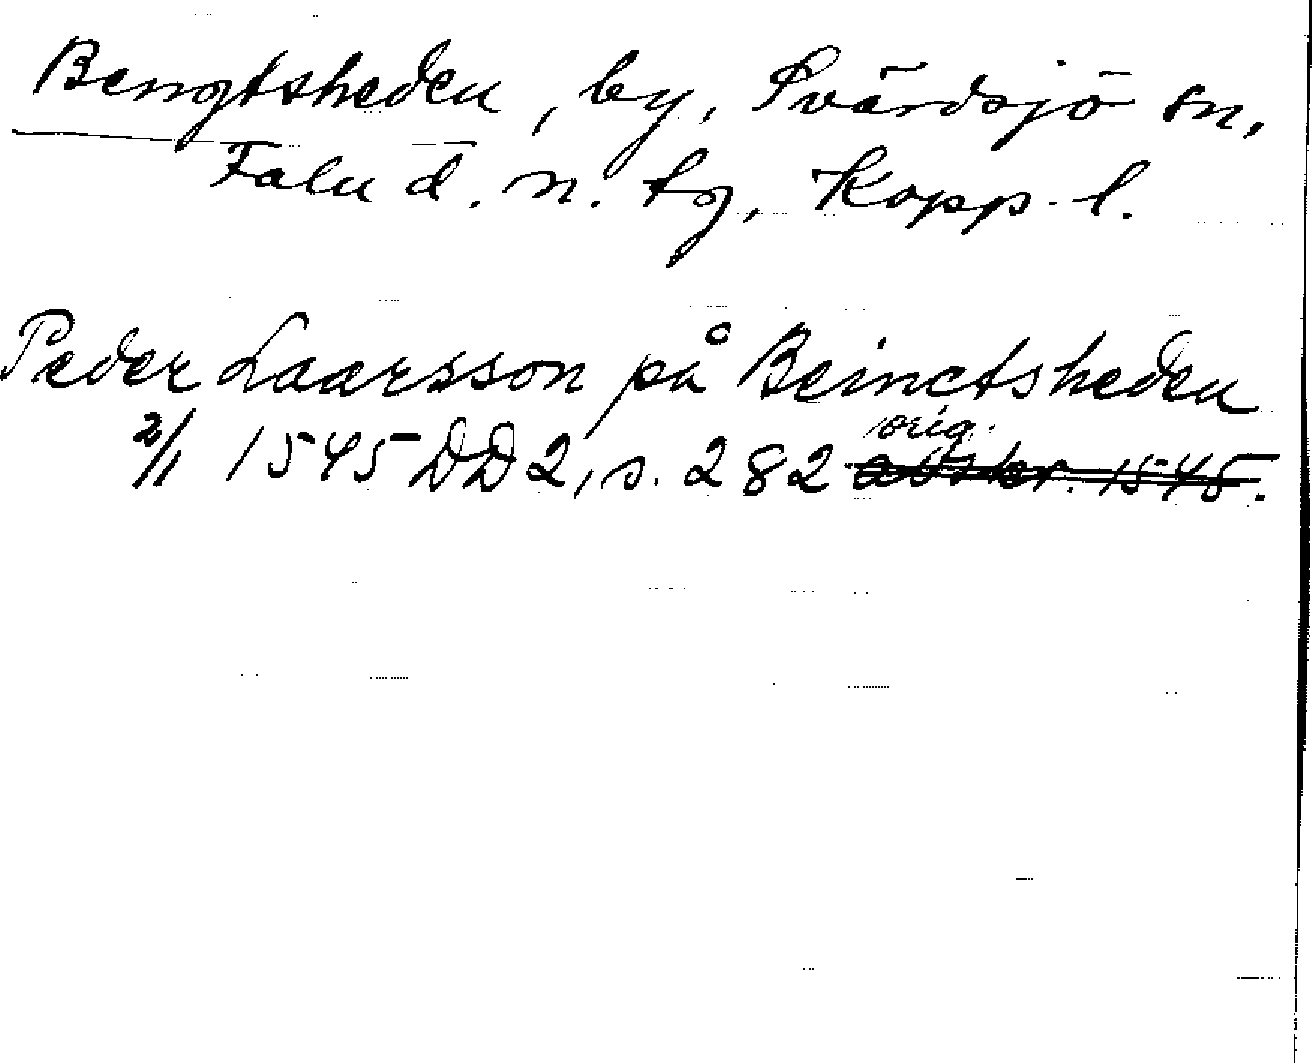 Bengtsheden, by, Svärdsjö sn,
Falu d. n. tg, Kopp. l.
Peder Laarsson på Beinctsheden
orig.
2/1 1545 DD 2, s. 282 avskr. 1545.